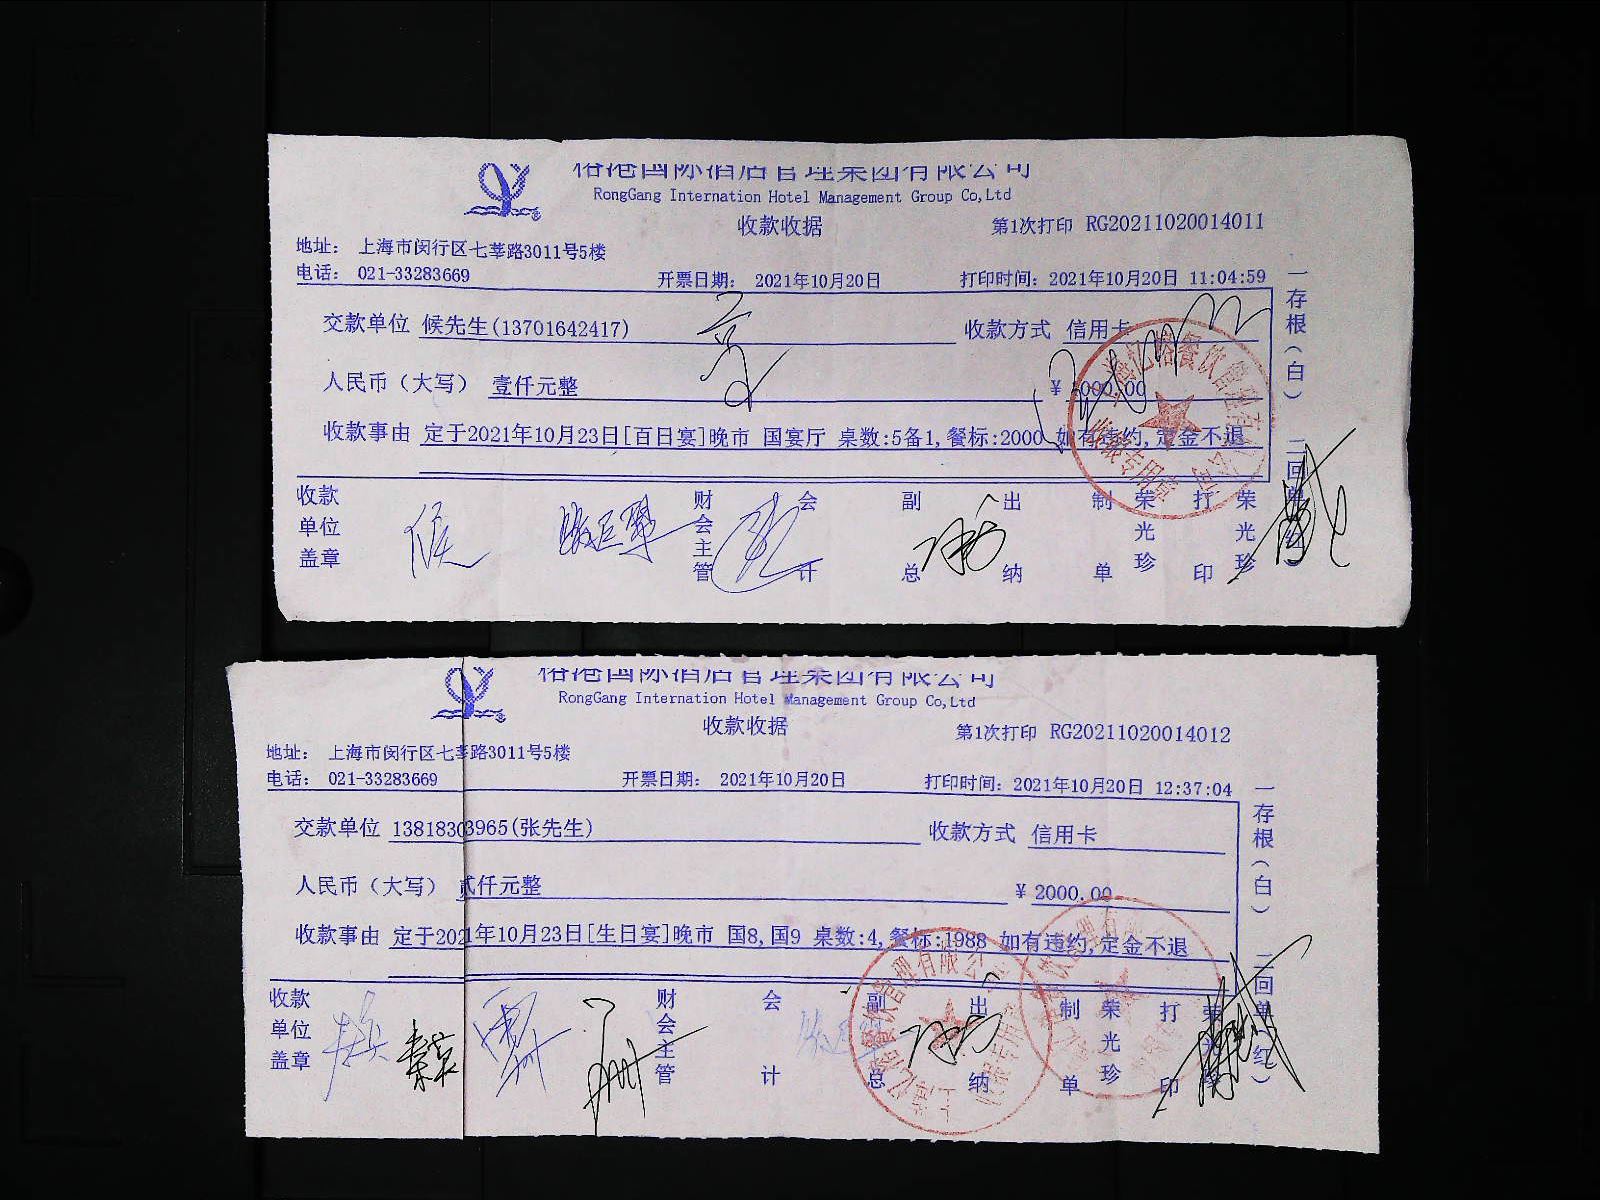 榕港国际酒店管理集团有限公司
RongGang Internation Hotel Management Group Co,Ltd
收款收据 第1次打印 RG20211020014011
地址： 上海市闵行区七莘路3011号5楼
电话： 021-33283669 开票日期： 2021年10月20日 打印时间：2021年10月20日 11:04:59
交款单位 候先生(13701642417) 收款方式 信用卡
人民币（大写） 壹仟元整 ¥ 1000.00
收款事由 定于2021年10月23日[百日宴]晚市 国宴厅 桌数:5备1,餐标:2000 如有违约,定金不退
收款单位盖章 候 财会主管 会计 副总 出纳 制单 荣光珍 打印 荣光珍
一存根（白） 二回单（红）
榕港国际酒店管理集团有限公司
RongGang Internation Hotel Management Group Co,Ltd
收款收据 第1次打印 RG20211020014012
地址： 上海市闵行区七莘路3011号5楼
电话： 021-33283669 开票日期： 2021年10月20日 打印时间：2021年10月20日 12:37:04
交款单位 13818303965(张先生) 收款方式 信用卡
人民币（大写） 贰仟元整 ¥ 2000.00
收款事由 定于2021年10月23日[生日宴]晚市 国8,国9 桌数:4,餐标:1988 如有违约,定金不退
收款单位盖章 财会主管 会计 副总 出纳 制单 荣光珍 打印 荣光珍
一存根（白） 二回单（红）